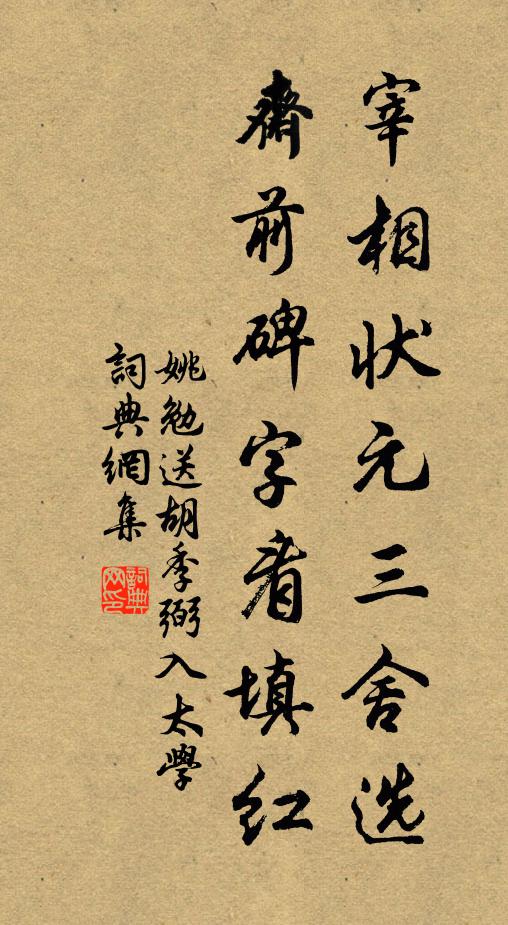 宰相状元三舍选
齋前碑字看填红
姚勉送胡季弼入太學
詞典網集
詞典网印